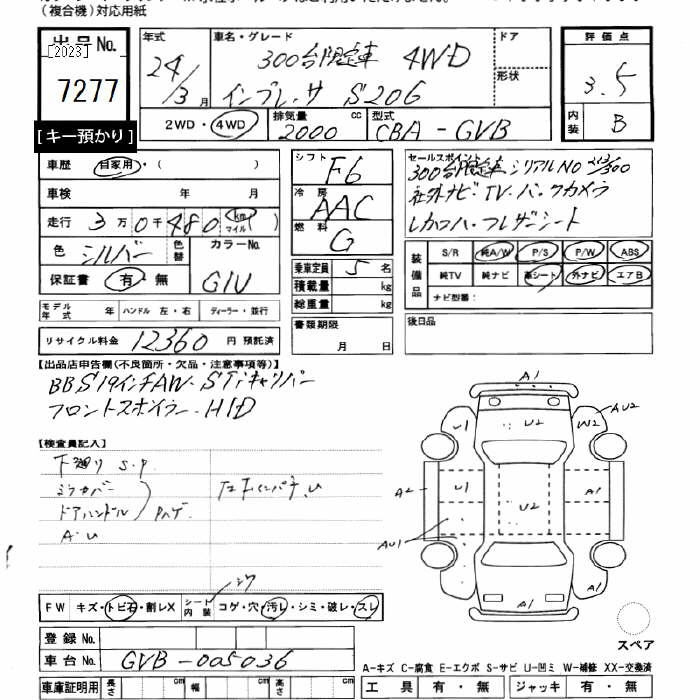 (複合機)対応用紙
出品No.
[2023]
7277
[キー預かり]
年式
24/3月
車名・グレード
300台限定車 4WD
インプレッサ S206
ドア
形状
評価点
3.5
内装
B
2WD・4WD
排気量
2000 cc
型式
CBA-GVB
車歴 自家用・( )
車検 年 月
走行 3万0千480 km マイル
色 シルバー 色替
カラーNo.
G1U
保証書 有・無
シフト F6
冷房 AAC
燃料 G
乗車定員 5 名
積載量 kg
総重量 kg
セールスポイント
300台限定車 シリアルNO /300
社外ナビ・TV・バックカメラ
レカロハーフレザーシート
装備品
S/R 純A/W P/S P/W ABS
純TV 純ナビ 革シート 外ナビ エアB
ナビ型番:
モデル年式 年 ハンドル 左・右 ディーラー・並行
リサイクル料金 12360 円 預託済
書類期限
月 日
後日品
【出品店申告欄(不良箇所・欠品・注意事項等)】
BBS19インチAW・STiキャリパー
フロントスポイラー・HID
【検査員記入】
下廻り S.P
ミラカバー
ドアハンドル
Pハゲ
A・U
A1
U1 U2 W2 AU2
A2 U1 U2 A1
AU1
A1
FW キズ・トビ石・割レX
シート内装 コゲ・穴・汚レ・シミ・破レ・スレ
スペア
登録No.
車台No. GVB-005036
A-キズ C-腐食 E-エクボ S-サビ U-凹ミ W-補修 XX-交換済
車庫証明用 長さ cm 幅 cm 高さ cm
工具 有・無 ジャッキ 有・無